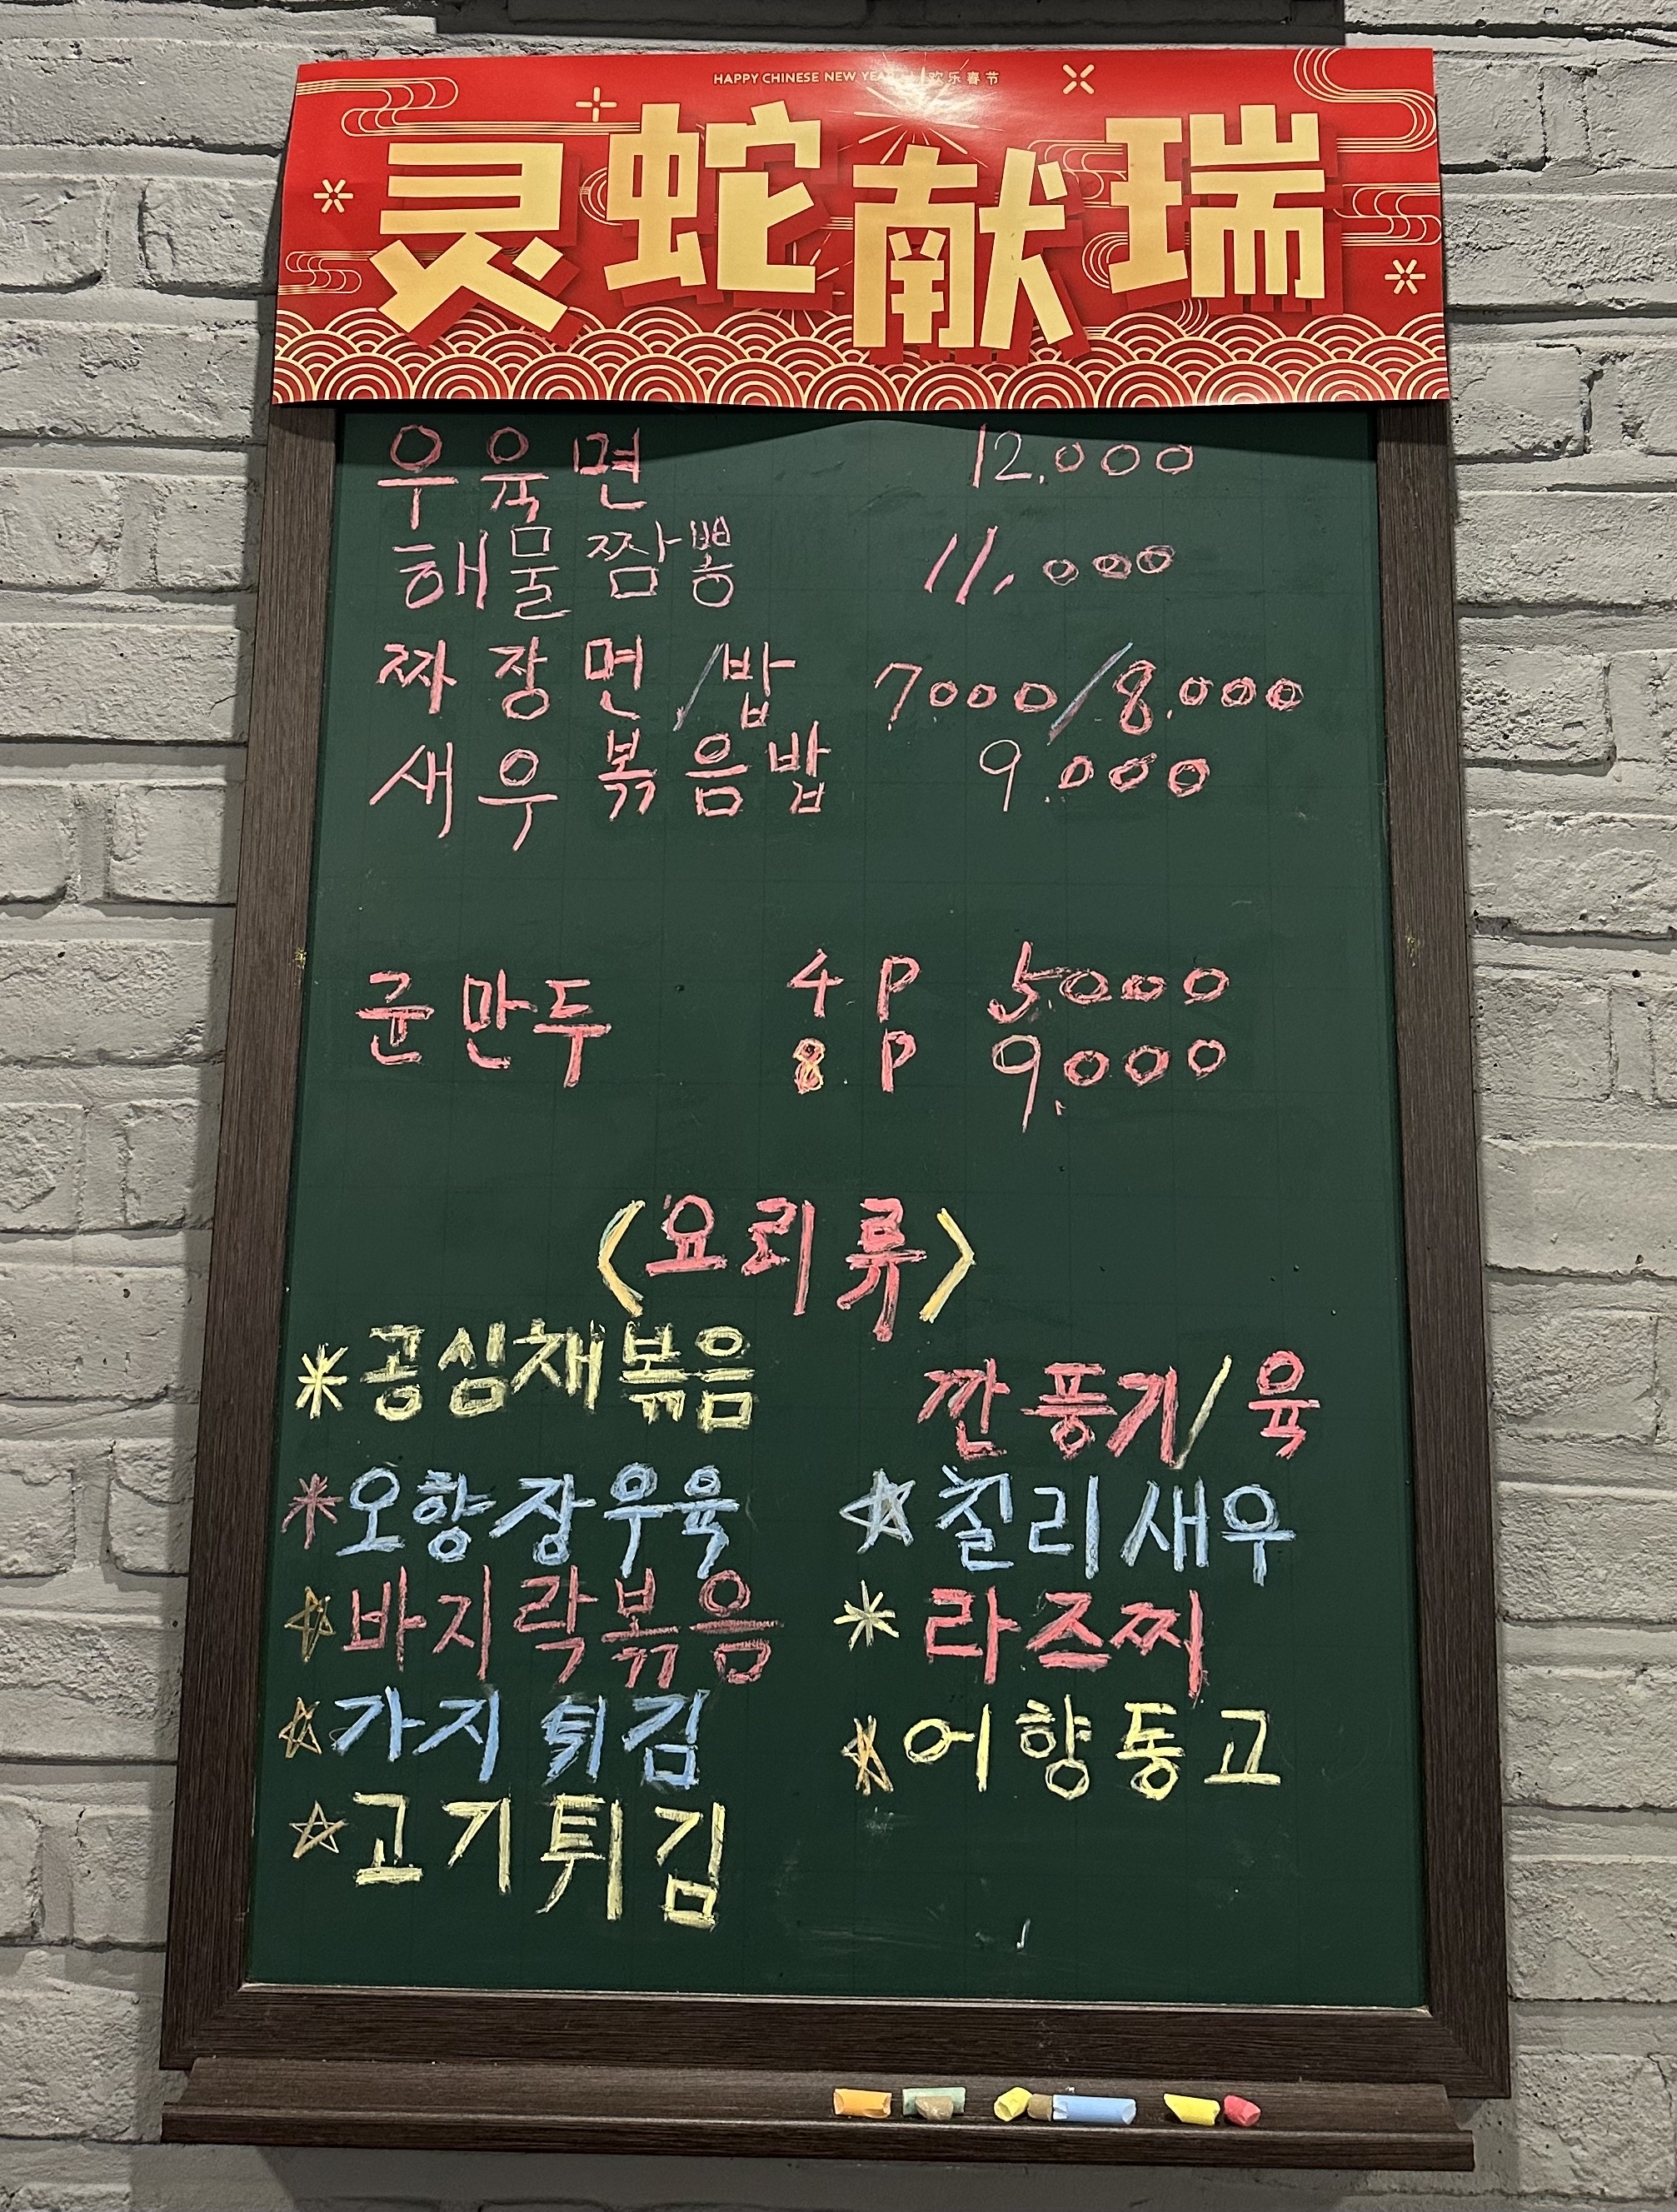 HAPPY CHINESE NEW YEAR 欢乐春节
灵蛇献瑞
우육면 12.000
해물짬뽕 11.000
짜장면/밥 7000/8.000
새우볶음밥 9.000
군만두 4P 5.000
8P 9.000
<요리류>
*공심채볶음 깐풍기/육
*오향장우육 ☆칠리새우
☆바지락볶음 *라즈찌
☆가지튀김 ☆어향동고
☆고기튀김